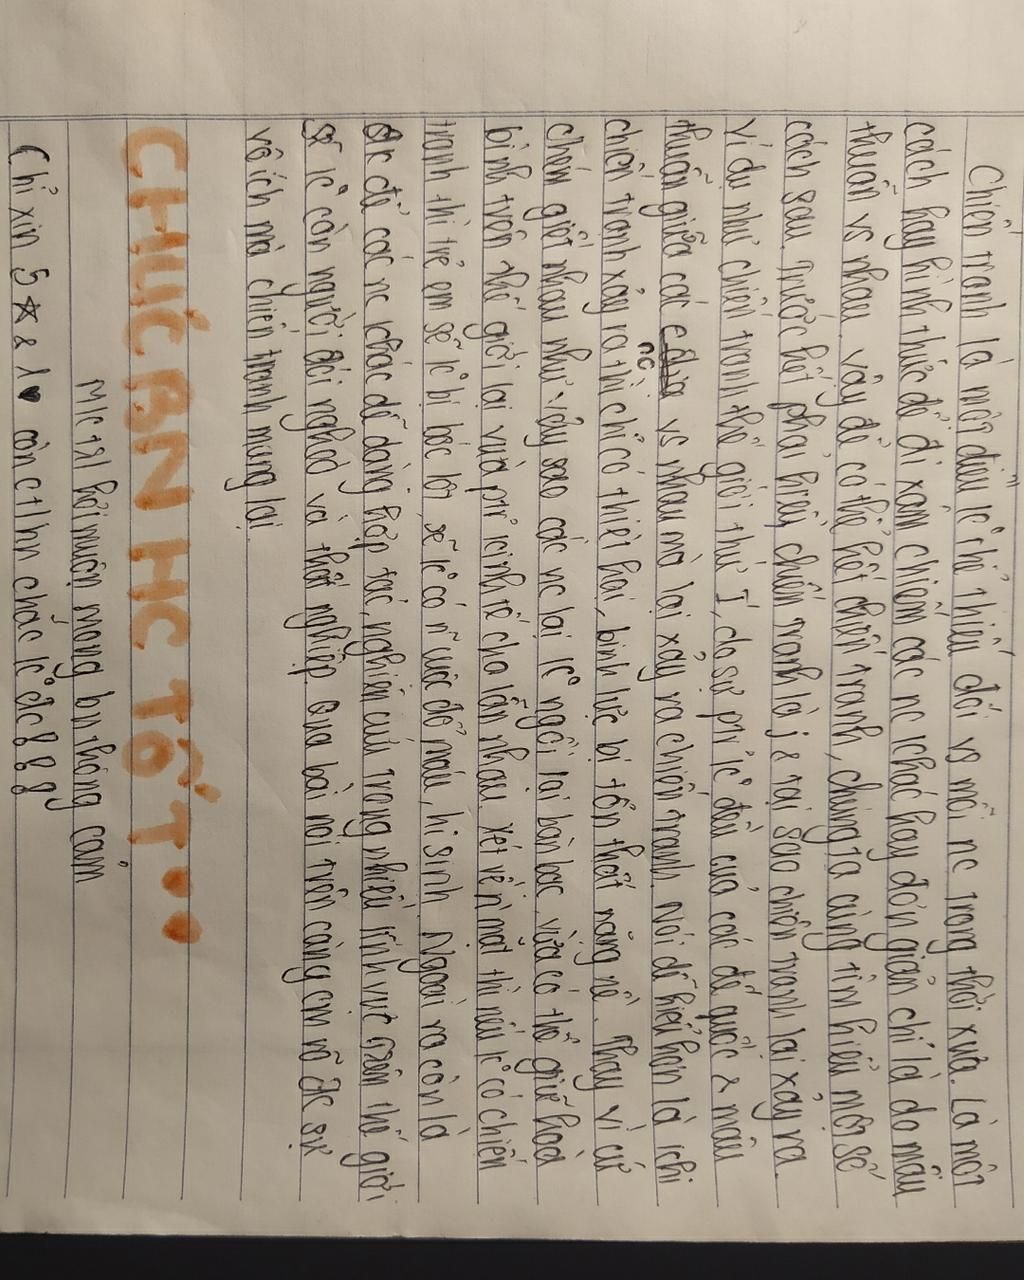 Chiến tranh là một điều k° thể thiếu đối vs mỗi nc trong thời xưa. Là một
cách hay hình thức để đi xâm chiếm các nc khác hay đơn giản chỉ là do mâu
thuẫn vs nhau. Vậy để có thể hết chiến tranh, chúng ta cùng tìm hiểu một số
cách sau. Trước hết phải hiểu chiến tranh là j & tại sao chiến tranh lại xảy ra.
Ví dụ như chiến tranh thế giới thứ I, do sự ptr k° đều của các đế quốc & mâu
thuẫn giữa các nc vs nhau mà lại xảy ra chiến tranh. Nói dễ hiểu hơn là khi
chiến tranh xảy ra thì chỉ có thiệt hại, binh lực bị tổn thất nặng nề. Thay vì cứ
chém giết nhau như vậy sao các nc lại k° ngồi lại bàn bạc, vừa có thể giữ hoà
bình trên thế giới lại vừa ptr kinh tế cho lẫn nhau. Xét về n` mặt thì nếu k° có chiến
tranh thì trẻ em sẽ k° bị bóc lột, sẽ k° có n~ cuộc đổ máu, hi sinh. Ngoài ra còn là
để các nc khác dễ dàng hợp tác, nghiên cứu trong nhiều lĩnh vực. Trên thế giới
sẽ k° còn người đói nghèo và thất nghiệp. Qua bài nói trên càng cm rõ đc sự
vô ích mà chiến tranh mang lại.
CHÚC BẠN HC TỐT...
Mk trl hơi muộn mong bn thông cảm
Chỉ xin 5☆ & 1♥ còn ctlhn chắc k° đc 888